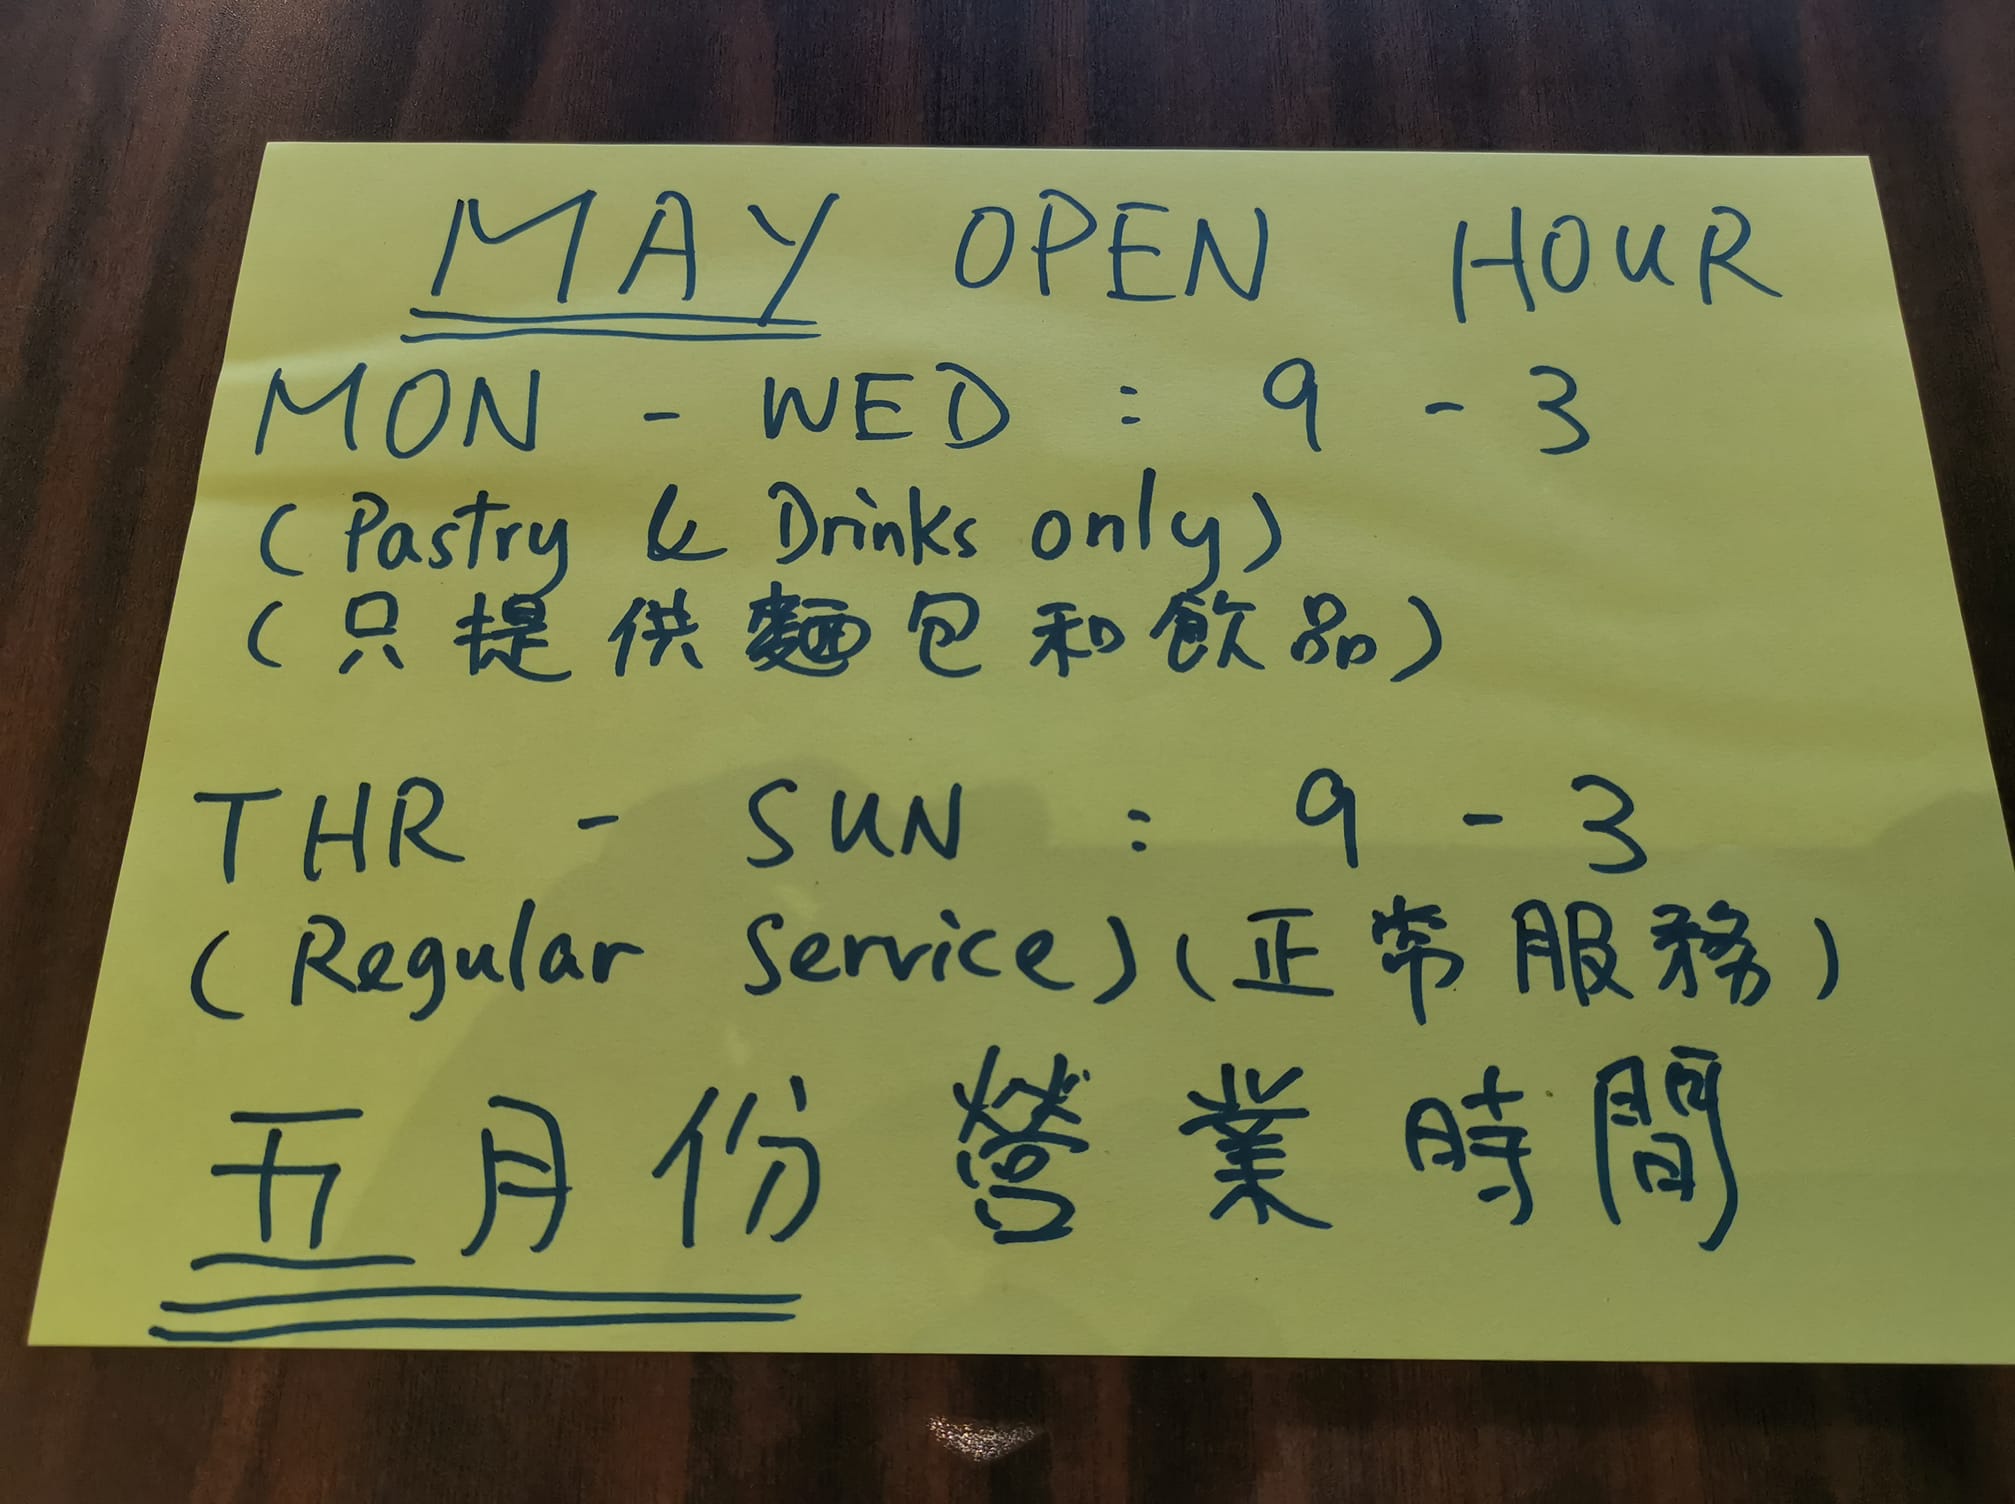 MAY OPEN HOUR
MON - WED : 9 - 3
(Pastry & Drinks only)
(只提供麵包和飲品)
THR - SUN : 9 - 3
(Regular Service)(正常服務)
五月份營業時間